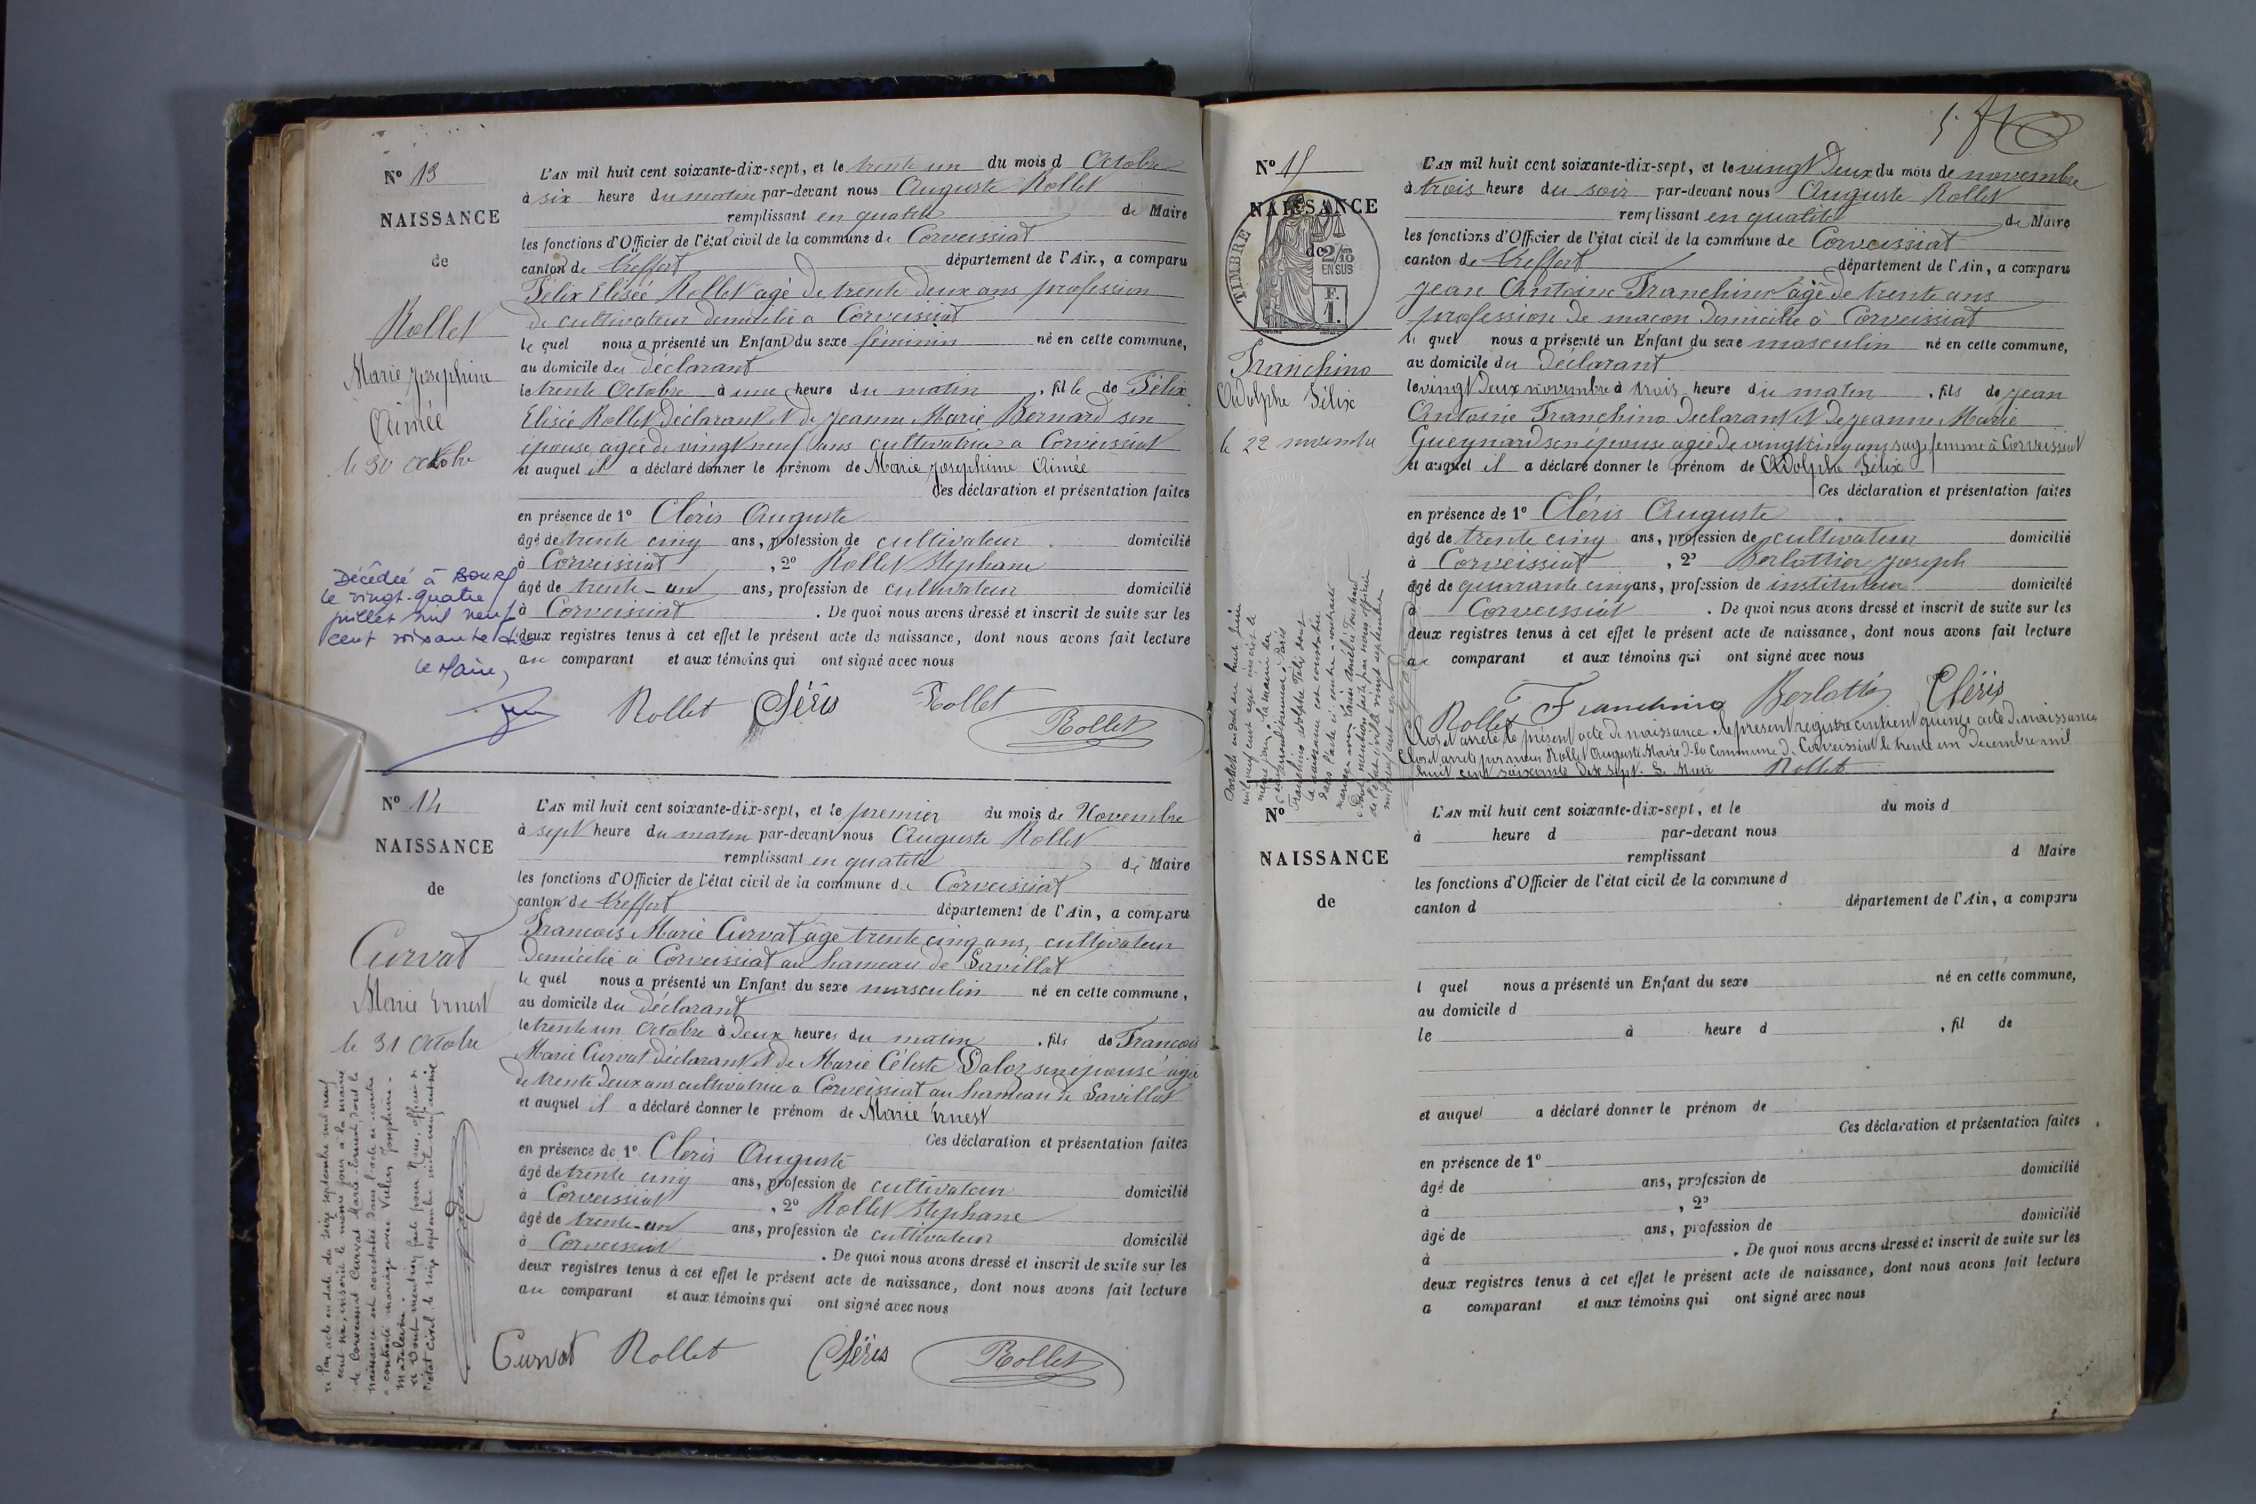 N° 13
NAISSANCE
de
Rollet
Marie Josephine
Aimée
le 30 octobre
Décédée à BOURG
le vingt-quatre
juillet mil neuf
cent soixante
Le Maire,
L'AN mil huit cent soixante-dix-sept, et le trente un du mois d Octobre
à six heure du matin par-devant nous Auguste Rollet
remplissant en qualité de Maire
les fonctions d'Officier de l'état civil de la commune de Corveissiat
canton de Treffort département de l'Ain, a comparu
Félix Elisée Rollet agé de trente deux ans profession
de cultivateur domicilié a Corveissiat
le quel nous a présenté un Enfant du sexe féminin né en cette commune,
au domicile du déclarant
le trente Octobre à une heure du matin , fille de Félix
Elisée Rollet déclarant et de Jeanne Marie Bernard son
épouse agée de vingt neuf ans cultivateur a Corveissiat
et auquel il a déclaré donner le prénom de Marie Josephine Aimée
Ces déclaration et présentation faites
en présence de 1° Cléris Auguste
âgé de trente cinq ans, profession de cultivateur domicilié
à Corveissiat , 2° Rollet Stephane
âgé de trente-un ans, profession de cultivateur domicilié
à Corveissiat . De quoi nous avons dressé et inscrit de suite sur les
deux registres tenus à cet effet le présent acte de naissance, dont nous avons fait lecture
au comparant et aux témoins qui ont signé avec nous
Rollet Cléris Rollet
Rollet
N° 14
NAISSANCE
de
Curvat
Marie Ernest
le 31 Octobre
Par acte en date du seize septembre mil neuf
cent six, inscrit le même jour à la mairie
de Corveissiat Curvat Marie Ernest, dont la
naissance est constatée dans l'acte ci-contre
a contracté mariage avec Vulin Joséphine
Madeleine.
Dont mention faite par Nous, officier de
l'état civil, le seize septembre mil neuf cent six
L'AN mil huit cent soixante-dix-sept, et le premier du mois de Novembre
à sept heure du matin par-devant nous Auguste Rollet
remplissant en qualité de Maire
les fonctions d'Officier de l'état civil de la commune de Corveissiat
canton de Treffort département de l'Ain, a comparu
Francois Marie Curvat agé trente cinq ans, cultivateur
domicilié à Corveissiat au hameau de Savillat
le quel nous a présenté un Enfant du sexe masculin né en cette commune,
au domicile du déclarant
le trente un Octobre à deux heures du matin , fils de Francois
Marie Curvat déclarant et de Marie Céleste Daloz son épouse agée
de trente deux ans cultivatrice a Corveissiat au hameau de Savillat
et auquel il a déclaré donner le prénom de Marie Ernest
Ces déclaration et présentation faites
en présence de 1° Cléris Auguste
âgé de trente cinq ans, profession de cultivateur domicilié
à Corveissiat , 2° Rollet Stephane
âgé de trente-un ans, profession de cultivateur domicilié
à Corveissiat . De quoi nous avons dressé et inscrit de suite sur les
deux registres tenus à cet effet le présent acte de naissance, dont nous avons fait lecture
au comparant et aux témoins qui ont signé avec nous
Curvat Rollet Cléris Rollet
N° 15
NAISSANCE
de
TIMBRE
2/10
EN SUS
F.
1.
Franchino
Adolphe Félix
le 22 novembre
L'AN mil huit cent soixante-dix-sept, et le vingt deux du mois de novembre
à trois heure du soir par-devant nous Auguste Rollet
remplissant en qualité de Maire
les fonctions d'Officier de l'état civil de la commune de Corveissiat
canton de Treffort département de l'Ain, a comparu
Jean Antoine Franchino agé de trente ans
profession de maçon domicilié à Corveissiat
le quel nous a présenté un Enfant du sexe masculin né en cette commune,
au domicile du déclarant
le vingt deux novembre à trois heure du matin , fils de Jean
Antoine Franchino déclarant et de Jeanne Marie
Gueynard son épouse agée de vingt cinq ans sage femme à Corveissiat
et auquel il a déclaré donner le prénom de Adolphe Félix
Ces déclaration et présentation faites
en présence de 1° Cléris Auguste
âgé de trente cinq ans, profession de cultivateur domicilié
à Corveissiat , 2° Berlottier Joseph
âgé de quarante cinq ans, profession de instituteur domicilié
à Corveissiat . De quoi nous avons dressé et inscrit de suite sur les
deux registres tenus à cet effet le présent acte de naissance, dont nous avons fait lecture
au comparant et aux témoins qui ont signé avec nous
Rollet Franchino Cléris
Clos et arrété le présent acte de naissance le present registre contient quinze acte de naissance
Clos et arreté par nous Rollet Auguste Maire de la Commune de Corveissiat le trente un decembre mil
huit cent soixante dix sept. Le Maire Rollet
N°
NAISSANCE
de
L'AN mil huit cent soixante-dix-sept, et le du mois d
à heure d par-devant nous
remplissant d Maire
les fonctions d'Officier de l'état civil de la commune d
canton d département de l'Ain, a comparu
l quel nous a présenté un Enfant du sexe né en cette commune,
au domicile d
le à heure d , fil de
et auquel a déclaré donner le prénom de
Ces déclaration et présentation faites
en présence de 1°
âgé de ans, profession de domicilié
à , 2°
âgé de ans, profession de domicilié
à . De quoi nous avons dressé et inscrit de suite sur les
deux registres tenus à cet effet le présent acte de naissance, dont nous avons fait lecture
a comparant et aux témoins qui ont signé avec nous